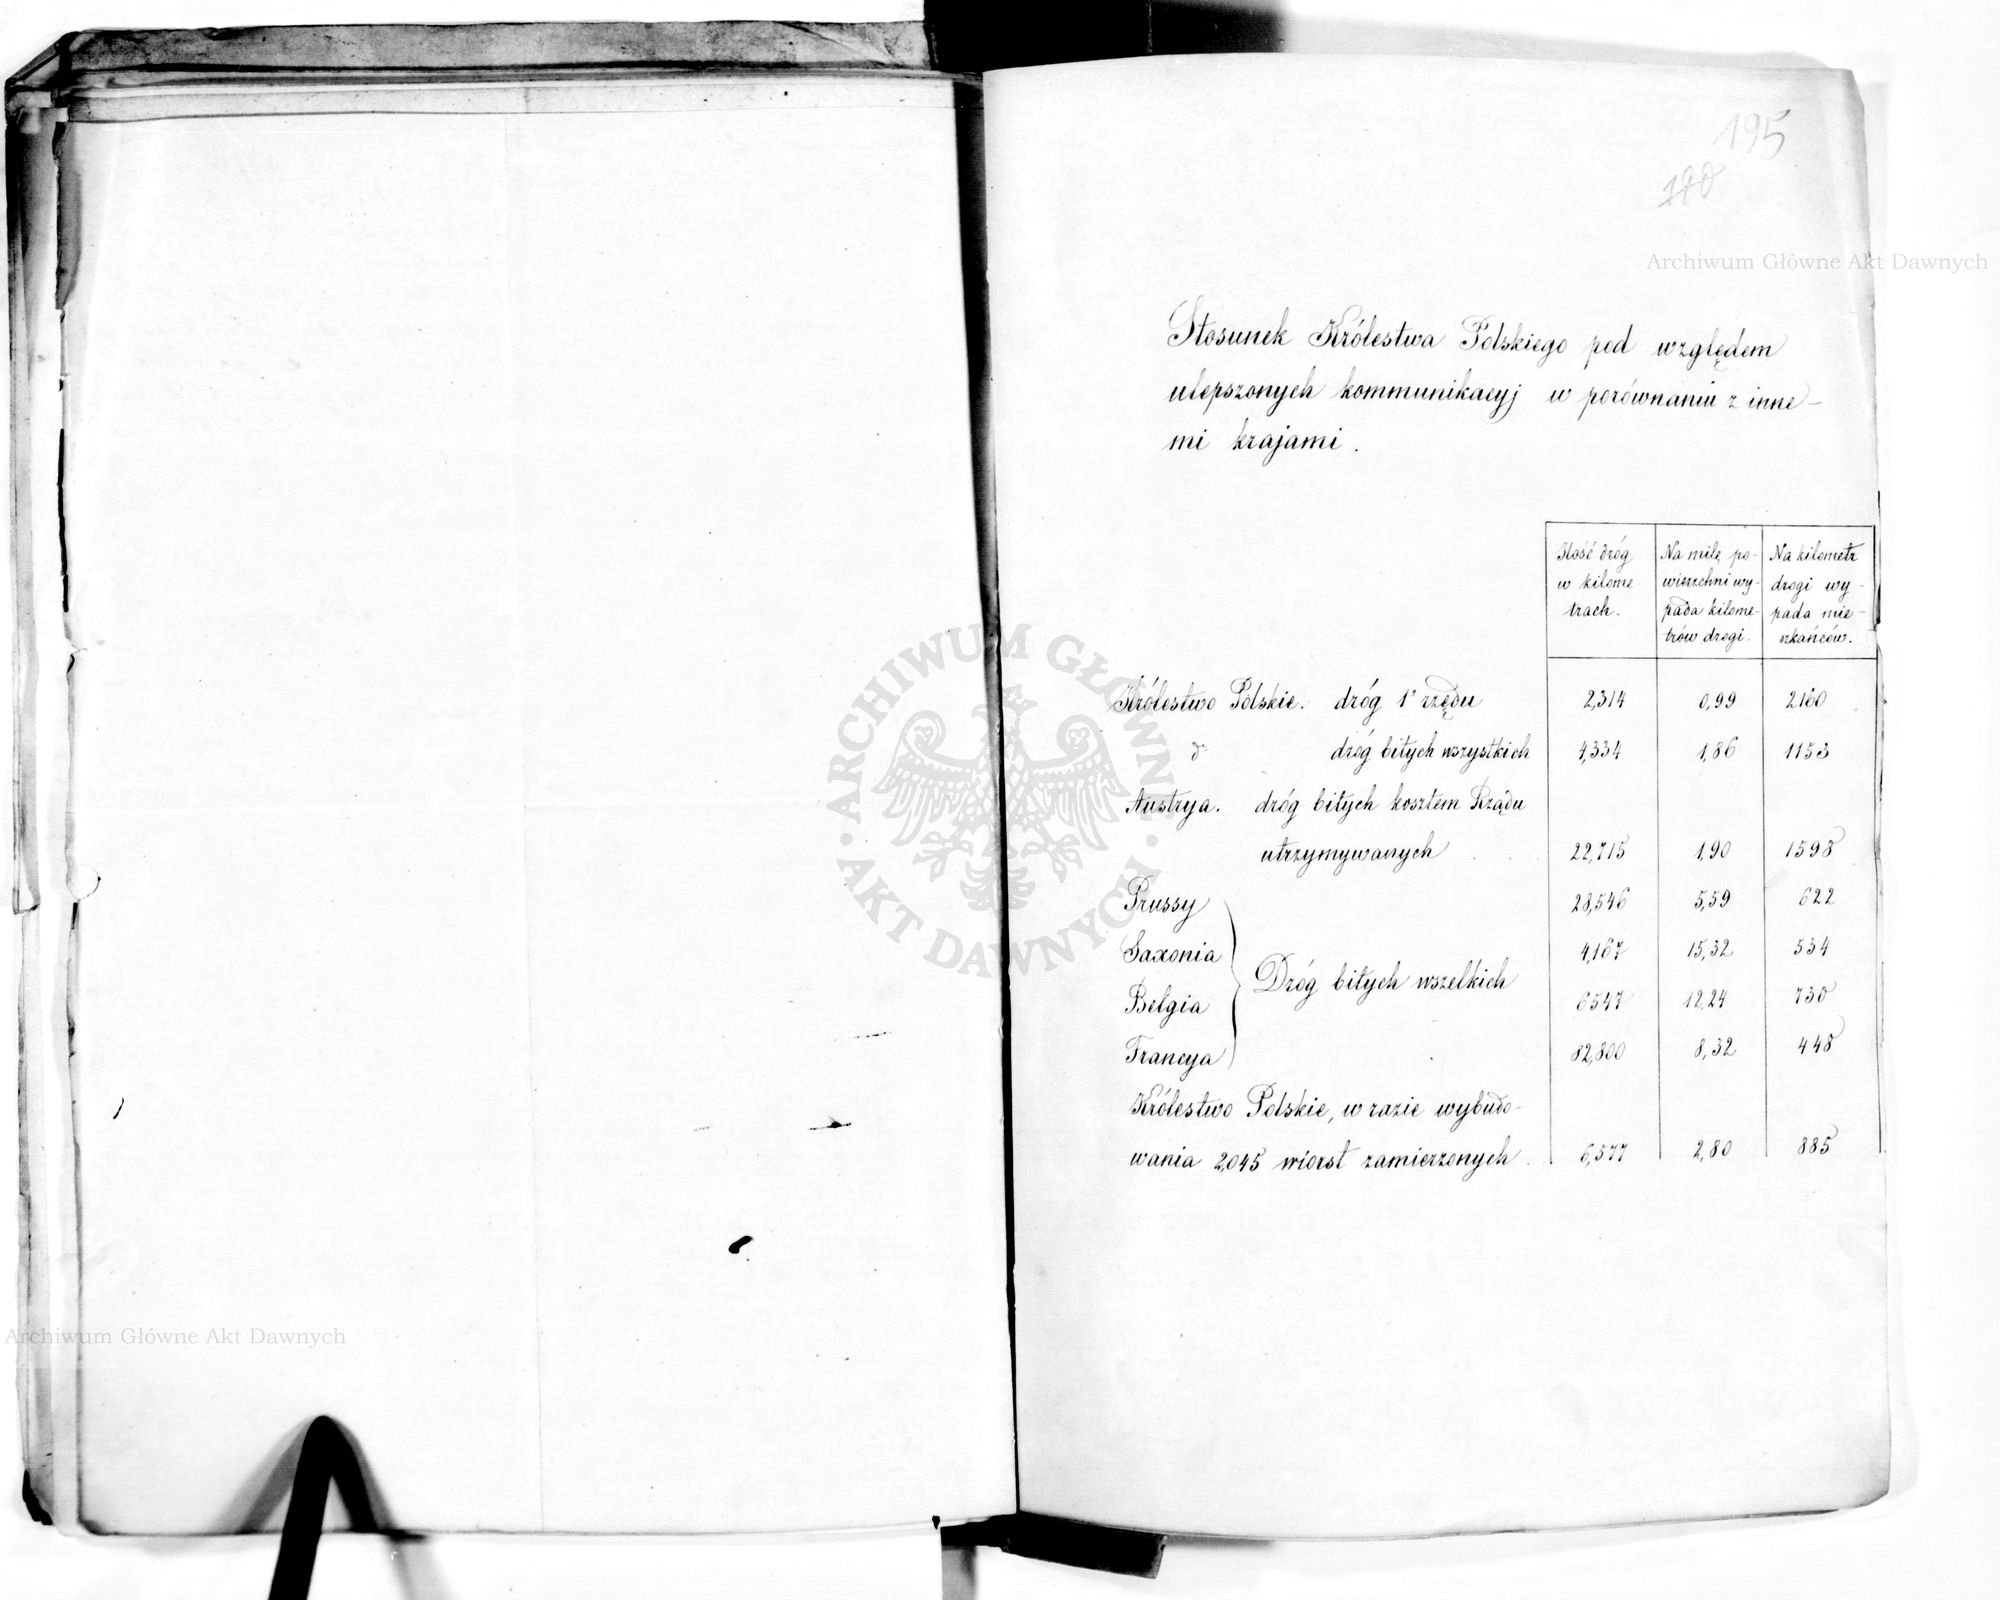 195
190
Archiwum Główne Akt Dawnych
Stosunek Królestwa Polskiego pod względem
ulepszonych kommunikacyj w porównaniu z inne-
mi krajami.
Ilość dróg w kilometrach. Na milę powierzchni wypada kilometrów drogi. Na kilometr drogi wypada mieszkańców.
Królestwo Polskie. dróg 1º rzędu 2,314 0,99 2160
dº dróg bitych wszystkich 4,334 1,86 1153
Austrya. dróg bitych kosztem Rządu
utrzymywanych 22,715 1,90 1598
Prussy 28,546 5,59 622
Saxonia 4,167 15,32 534
Dróg bitych wszelkich
Belgia 6547 12,24 730
Francya 82,800 8,32 448
Królestwo Polskie, w razie wybudo-
wania 2,045 wiorst zamierzonych 6,577 2,80 885
ARCHIWUM GŁÓWNE
AKT DAWNYCH
Archiwum Główne Akt Dawnych